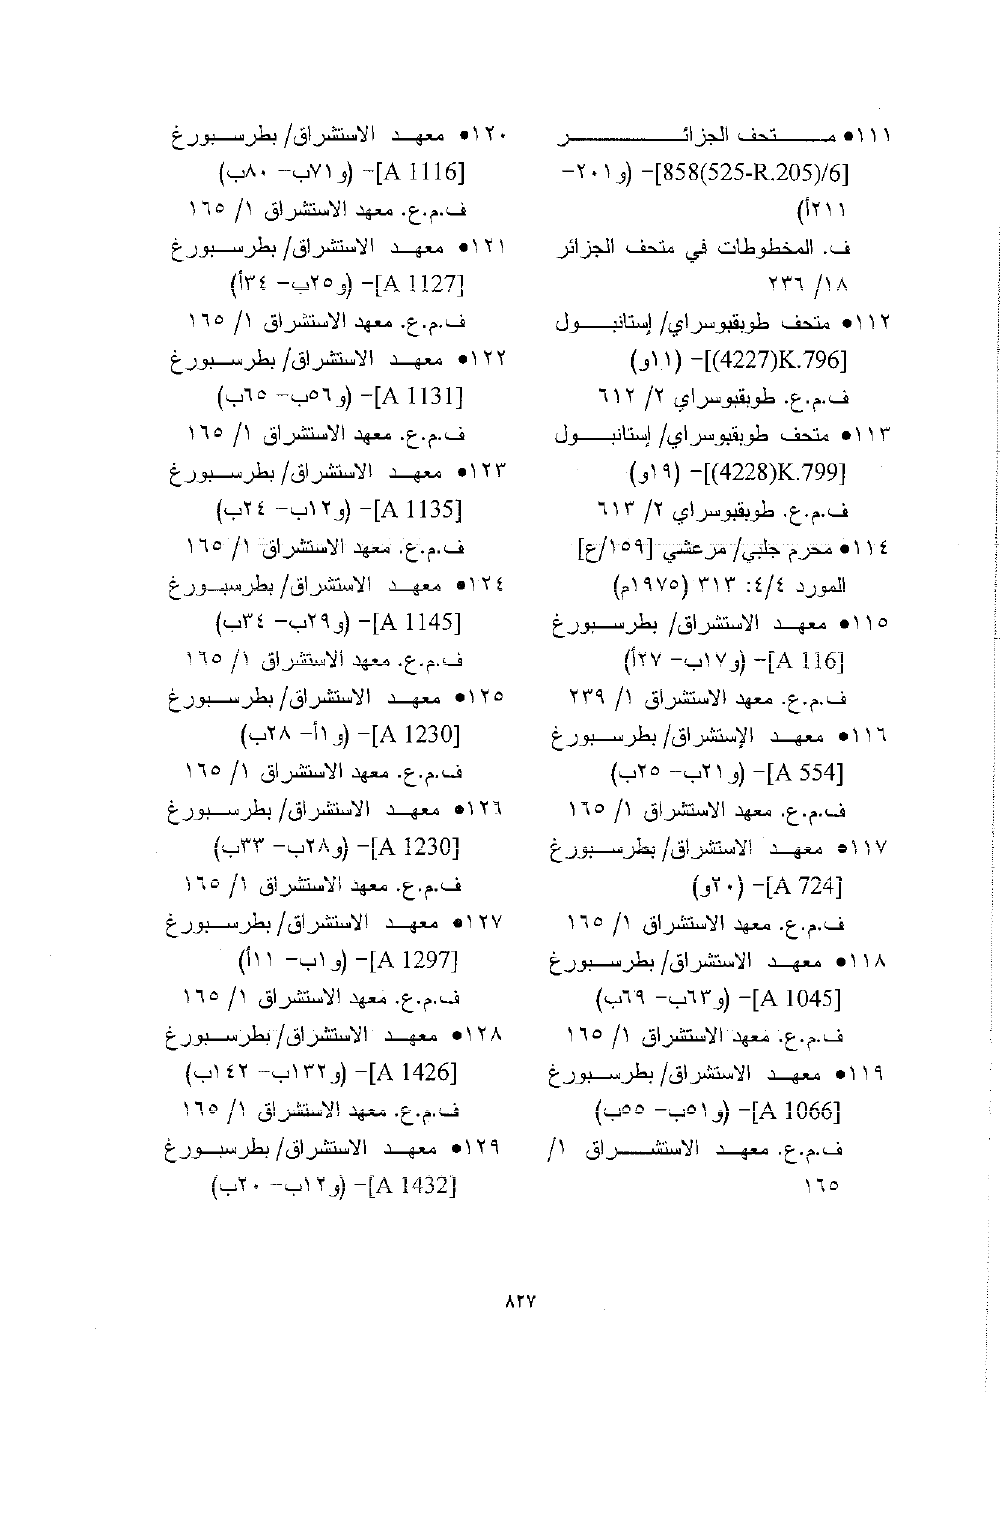 ١١١• متحف الجزائر
[858(525-R.205)/6]- (و٢٠١-
٢١١أ)
ف. المخطوطات في متحف الجزائر
١٨/ ٢٣٦
١١٢• متحف طوبقبوسراي/ إستانبول
[(4227)K.796]- (١١و)
ف.م.ع. طوبقبوسراي ٢/ ٦١٢
١١٣• متحف طوبقبوسراي/ إستانبول
[(4228)K.799]- (١٩و)
ف.م.ع. طوبقبوسراي ٢/ ٦١٣
١١٤• محرم جلبي/ مرعشي [١٥٩/ع]
المورد ٤/٤: ٣١٣ (١٩٧٥م)
١١٥• معهد الاستشراق/ بطرسبورغ
[A 116]- (و١٧ب- ٢٧أ)
ف.م.ع. معهد الاستشراق ١/ ٢٣٩
١١٦• معهد الإستشراق/ بطرسبورغ
[A 554]- (و٢١ب- ٢٥ب)
ف.م.ع. معهد الاستشراق ١/ ١٦٥
١١٧• معهد الاستشراق/ بطرسبورغ
[A 724]- (٢٠و)
ف.م.ع. معهد الاستشراق ١/ ١٦٥
١١٨• معهد الاستشراق/ بطرسبورغ
[A 1045]- (و٦٣ب- ٦٩ب)
ف.م.ع. معهد الاستشراق ١/ ١٦٥
١١٩• معهد الاستشراق/ بطرسبورغ
[A 1066]- (و٥١ب- ٥٥ب)
ف.م.ع. معهد الاستشراق ١/
١٦٥
١٢٠• معهد الاستشراق/ بطرسبورغ
[A 1116]- (و٧١ب- ٨٠ب)
ف.م.ع. معهد الاستشراق ١/ ١٦٥
١٢١• معهد الاستشراق/ بطرسبورغ
[A 1127]- (و٢٥ب- ٣٤أ)
ف.م.ع. معهد الاستشراق ١/ ١٦٥
١٢٢• معهد الاستشراق/ بطرسبورغ
[A 1131]- (و٥٦ب- ٦٥ب)
ف.م.ع. معهد الاستشراق ١/ ١٦٥
١٢٣• معهد الاستشراق/ بطرسبورغ
[A 1135]- (و١٢ب- ٢٤ب)
ف.م.ع. معهد الاستشراق ١/ ١٦٥
١٢٤• معهد الاستشراق/ بطرسبورغ
[A 1145]- (و٢٩ب- ٣٤ب)
ف.م.ع. معهد الاستشراق ١/ ١٦٥
١٢٥• معهد الاستشراق/ بطرسبورغ
[A 1230]- (و١أ- ٢٨ب)
ف.م.ع. معهد الاستشراق ١/ ١٦٥
١٢٦• معهد الاستشراق/ بطرسبورغ
[A 1230]- (و٢٨ب- ٣٣ب)
ف.م.ع. معهد الاستشراق ١/ ١٦٥
١٢٧• معهد الاستشراق/ بطرسبورغ
[A 1297]- (و١ب- ١١أ)
ف.م.ع. معهد الاستشراق ١/ ١٦٥
١٢٨• معهد الاستشراق/ بطرسبورغ
[A 1426]- (و١٣٢ب- ١٤٢ب)
ف.م.ع. معهد الاستشراق ١/ ١٦٥
١٢٩• معهد الاستشراق/ بطرسبورغ
[A 1432]- (و١٢ب- ٢٠ب)
٨٢٧